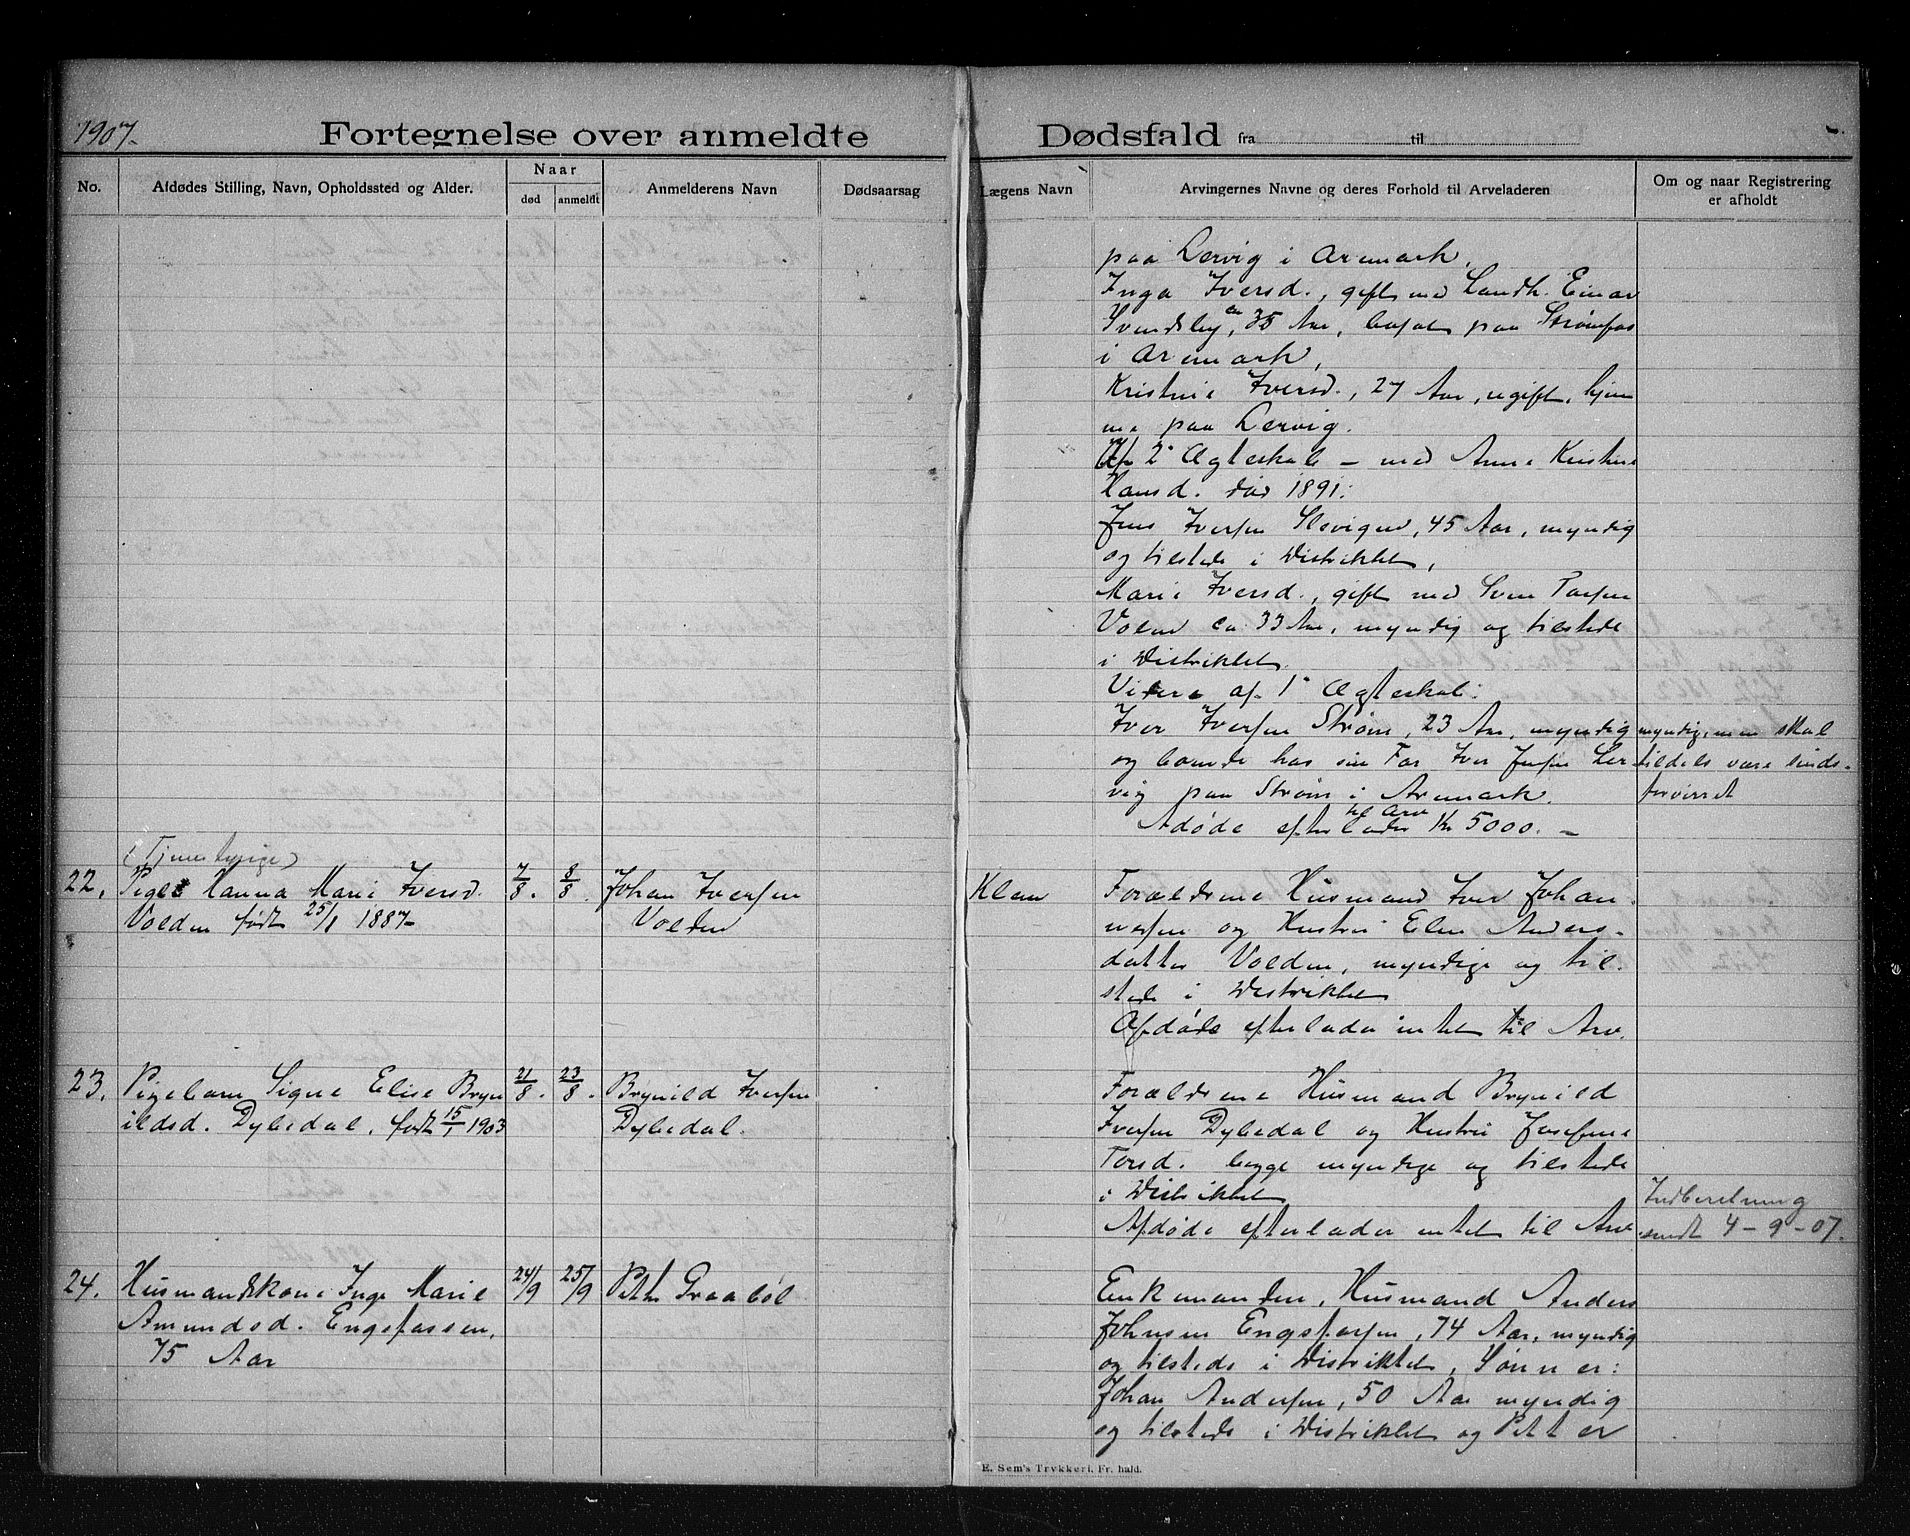 1907.
Fortegnelse over anmeldte Dødsfald fra til
No.
Afdødes Stilling, Navn, Opholdssted og Alder.
Naar
død
anmeldt
Anmelderens Navn
Dødsaarsag
Lægens Navn
Arvingernes Navne og deres Forhold til Arveladeren
Om og naar Registrering
er afholdt
paa Lervig i Aremark,
Inga Iversd., gift med Landh. Einar
Svendsby, ca 35 Aar, bosat paa Strømfos
i Aremark,
Kristine Iversd., 27 Aar, ugift, hjem
me paa Lervig.
Af 2° Ægteskab – med Anne Kristine
Hansd. død 1891:
Jens Iversen Slevigen, 45 Aar, myndig
og tilstede i Distriktet,
Marie Iversd., gift med Sven Torsen
Volen ca 33 Aar, myndig og tilstede
i Distriktet.
Videre af 1° Ægteskab:
Iver Iversen Strøm, 23 Aar, myndig
og boende hos sin Far Iver Jensen Ler-
vig paa Strøm i Aremark.
Afdøde efterlader til Arv Kr 5000. –
myndig, men skal
tildels være sinds-
forvirret
22.
(Tjenestepige)
Pige Hanna Marie Iversd.
Volden født 25/1 1887
7/8.
8/8.
Johan Iversen
Volden
Klem
Forældrene Husmand Iver Johan-
nesen og Hustru Elen Anders-
datter Volden, myndige og til-
stede i Distriktet
Afdøde efterlader intet til Arv.
23.
Pigebarn Signe Elise Bryn
ildsd. Dybedal, født 15/1 1903
21/8.
23/8.
Brynild Iversen
Dybedal.
Forældrene Husmand Brynild
Iversen Dybedal og Hustru Josefine
Torsd. begge myndige og tilstede
i Distriktet
Afdøde efterlader intet til Arv
Indberetning
sendt 4-9-07.
24.
Husmandskone Inge Marie
Amundsd. Engefossen,
75 Aar
24/9
25/9
Petter Graabøl
Enkemanden, Husmand Anders
Johnsen Engefossen, 74 Aar, myndig
og tilstede i Distriktet, Sønner:
Johan Andersen, 50 Aar myndig
og tilstede i Distriktet og Petter
E. Sem's Trykkeri, Fr. hald.